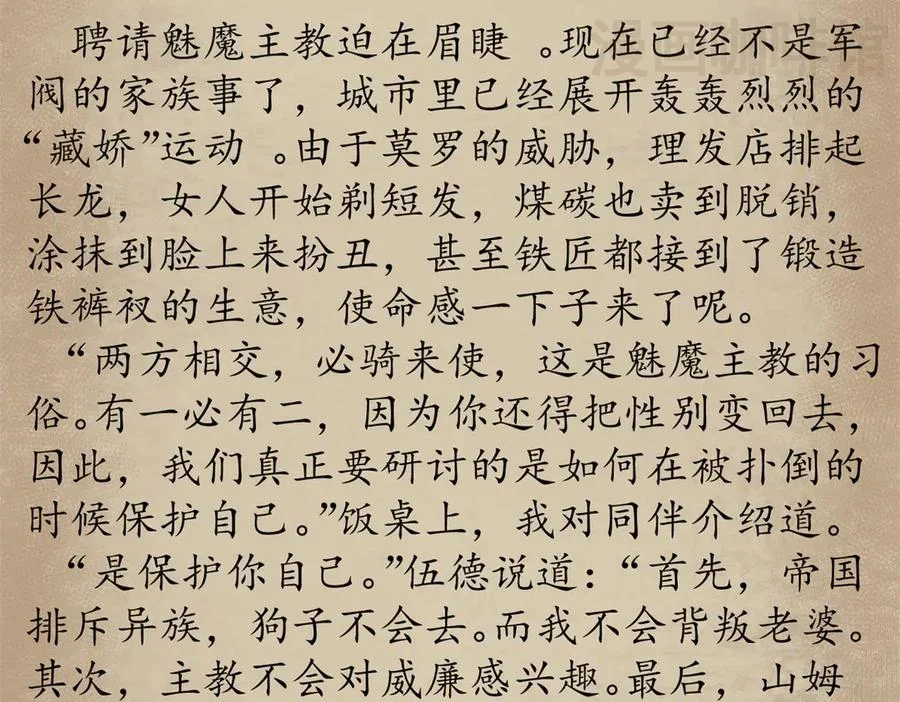 聘请魅魔主教迫在眉睫。现在已经不是军
阀的家族事了，城市里已经展开轰轰烈烈的
“藏娇”运动。由于莫罗的威胁，理发店排起
长龙，女人开始剃短发，煤碳也卖到脱销，
涂抹到脸上来扮丑，甚至铁匠都接到了锻造
铁裤衩的生意，使命感一下子来了呢。
“两方相交，必骑来使，这是魅魔主教的习
俗。有一必有二，因为你还得把性别变回去，
因此，我们真正要研讨的是如何在被扑倒的
时候保护自己。”饭桌上，我对同伴介绍道。
“是保护你自己。”伍德说道：“首先，帝国
排斥异族，狗子不会去。而我不会背叛老婆。
其次，主教不会对威廉感兴趣。最后，山姆